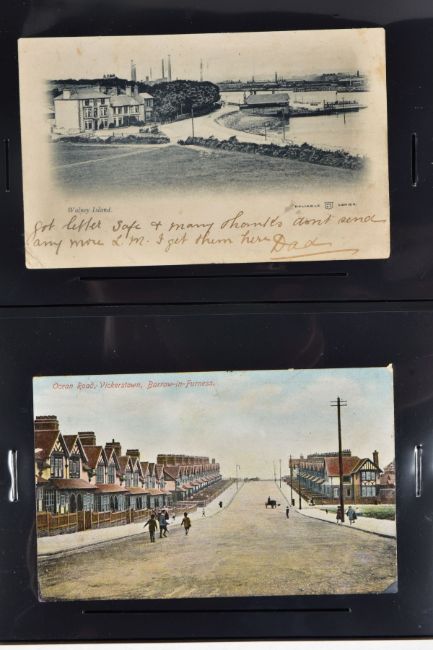 Walney Island.
RELIABLE SERIES.
Got letter safe & many thanks dont send
any more L.M. I get them here Dad
Ocean Road, Vickerstown, Barrow-in-Furness.